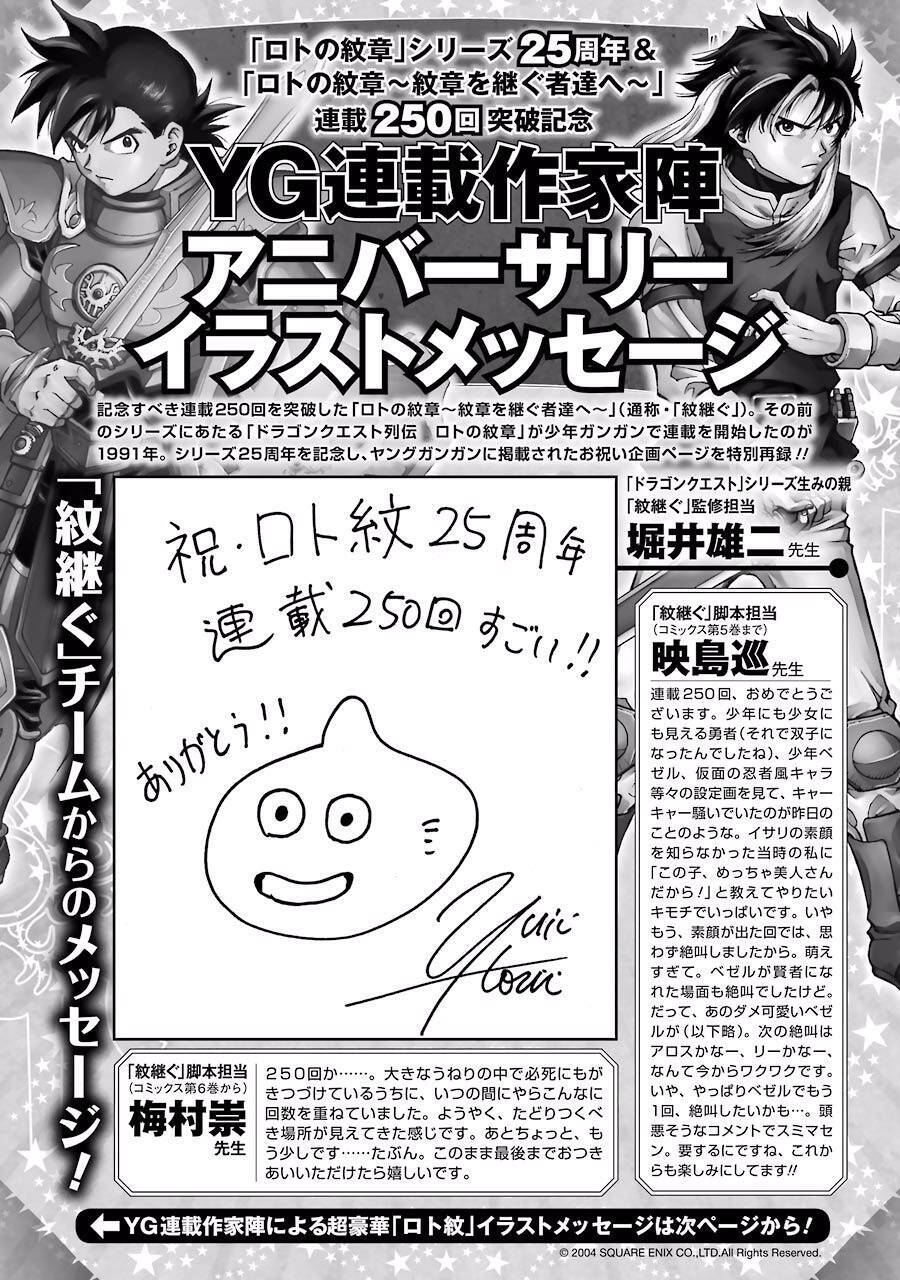 「ロトの紋章」シリーズ25周年&
「ロトの紋章~紋章を継ぐ者達へ~」
連載250回突破記念
YG連載作家陣
アニバーサリー
イラストメッセージ
記念すべき連載250回を突破した「ロトの紋章~紋章を継ぐ者達へ~」(通称・「紋継ぐ」)。その前
のシリーズにあたる「ドラゴンクエスト列伝 ロトの紋章」が少年ガンガンで連載を開始したのが
1991年。シリーズ25周年を記念し、ヤングガンガンに掲載されたお祝い企画ページを特別再録!!
「紋継ぐ」チームからのメッセージ!
「ドラゴンクエスト」シリーズ生みの親
「紋継ぐ」監修担当
堀井雄二先生
祝・ロト紋25周年
連載250回すごい!!
ありがとう!!
Yuji
Horii
「紋継ぐ」脚本担当
(コミックス第5巻まで)
映島巡先生
連載250回、おめでとうご
ざいます。少年にも少女に
も見える勇者(それで双子に
なったんでしたね)、少年ベ
ゼル、仮面の忍者風キャラ
等々の設定画を見て、キャー
キャー騒いでいたのが昨日の
ことのような。イサリの素顔
を知らなかった当時の私に
「この子、めっちゃ美人さん
だから!」と教えてやりたい
キモチでいっぱいです。いや
もう、素顔が出た回では、思
わず絶叫しましたから。萌え
すぎて。ベゼルが賢者にな
れた場面も絶叫でしたけど。
だって、あのダメ可愛いベゼ
ルが(以下略)。次の絶叫は
アロスかなー、リーかなー、
なんて今からワクワクです。
いや、やっぱりベゼルでもう
1回、絶叫したいかも…。頭
悪そうなコメントでスミマセ
ン。要するにですね、これか
らも楽しみにしてます!!
「紋継ぐ」脚本担当
(コミックス第6巻から)
梅村崇
先生
250回か……。大きなうねりの中で必死にもが
きつづけているうちに、いつの間にやらこんなに
回数を重ねていました。ようやく、たどりつくべ
き場所が見えてきた感じです。あとちょっと、も
う少しです……たぶん。このまま最後までおつき
あいいただけたら嬉しいです。
←YG連載作家陣による超豪華「ロト紋」イラストメッセージは次ページから!
© 2004 SQUARE ENIX CO.,LTD.All Rights Reserved.